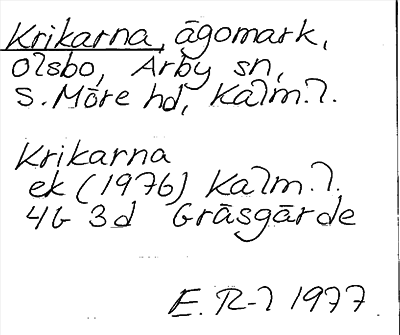 Krikarna, ägomark,
Olsbo, Arby sn,
S. Möre hd, Kalm. l.
Krikarna
ek (1976) Kalm. l.
4G 3d Gräsgärde
E. R-l 1977